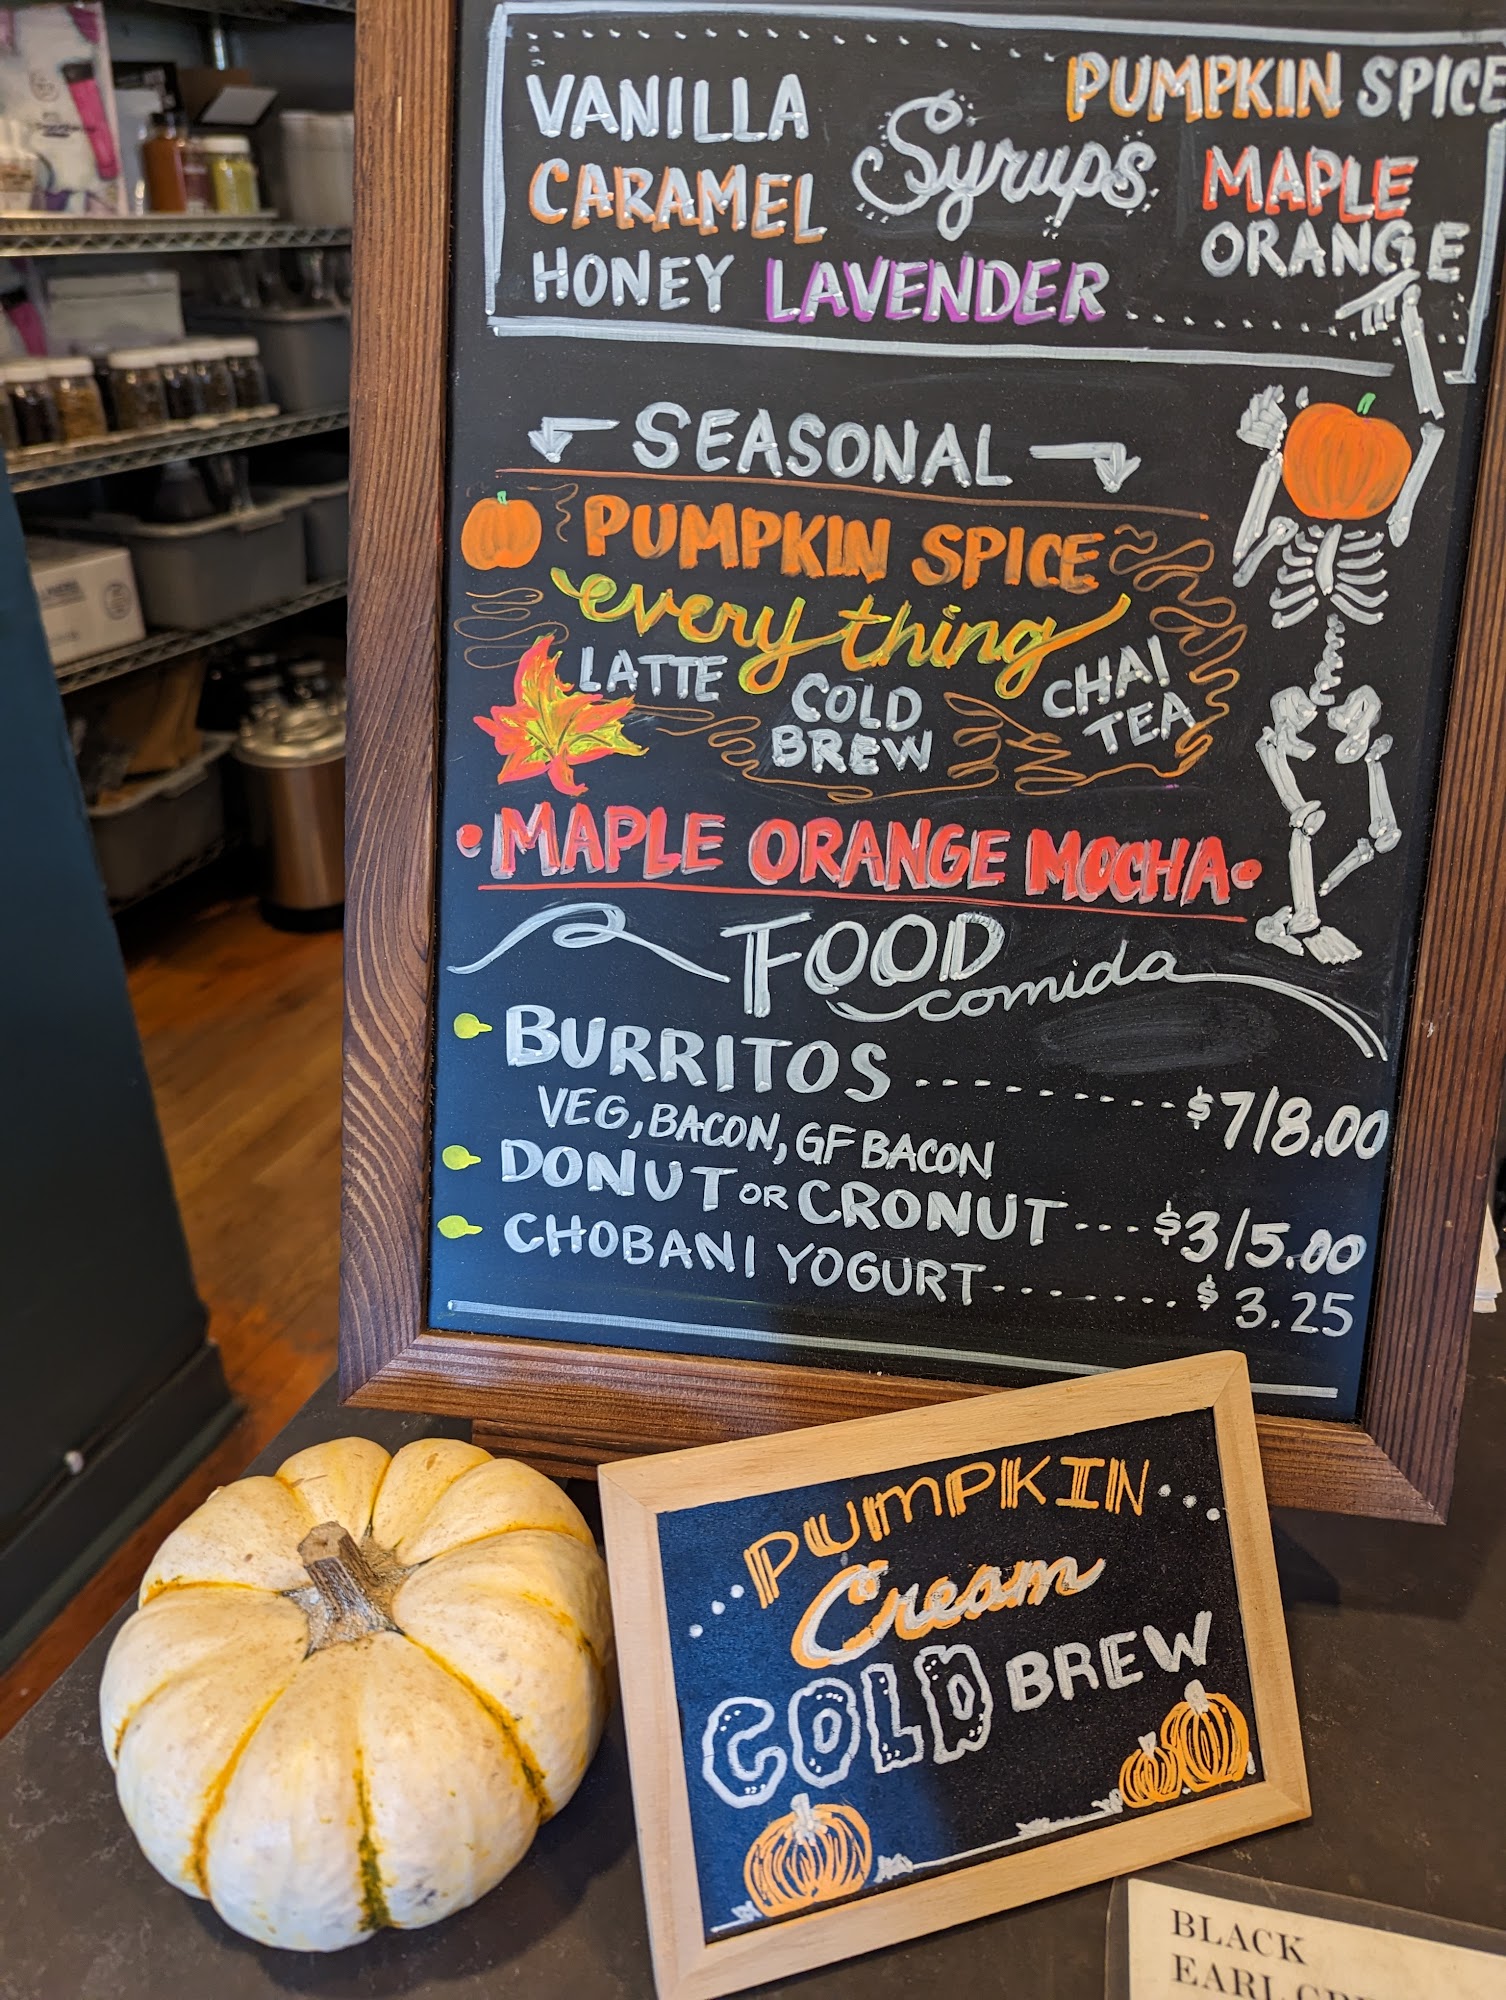 VANILLA
CARAMEL
HONEY LAVENDER
Syrups
PUMPKIN SPICE
MAPLE
ORANGE
SEASONAL
PUMPKIN SPICE
everything
LATTE
COLD
BREW
CHAI
TEA
MAPLE ORANGE MOCHA
FOOD
comida
BURRITOS ........... $7/8.00
VEG, BACON, GF BACON
DONUT OR CRONUT ... $3/5.00
CHOBANI YOGURT ........ $3.25
PUMPKIN
Cream
COLD BREW
BLACK
EARL